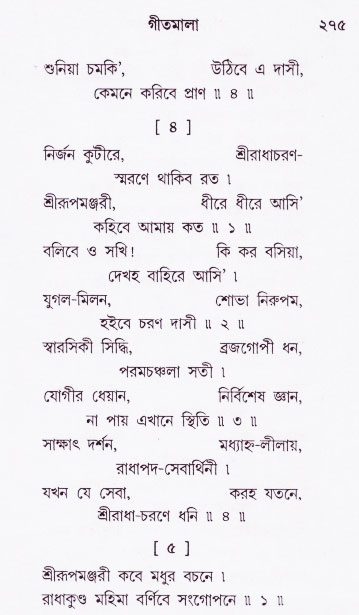 গীতমালা ২৭৫
শুনিয়া চমকি', উঠিবে এ দাসী,
কেমনে করিবে প্রাণ ॥ ৪ ॥
[ ৪ ]
নির্জন কুটীরে, শ্রীরাধাচরণ-
স্মরণে থাকিব রত ।
শ্রীরূপমঞ্জরী, ধীরে ধীরে আসি'
কহিবে আমায় কত ॥ ১ ॥
বলিবে ও সখি! কি কর বসিয়া,
দেখহ বাহিরে আসি' ।
যুগল-মিলন, শোভা নিরুপম,
হইবে চরণ দাসী ॥ ২ ॥
স্বারসিকী সিদ্ধি, ব্রজগোপী ধন,
পরমচঞ্চলা সতী ।
যোগীর ধেয়ান, নির্বিশেষ জ্ঞান,
না পায় এখানে স্থিতি ॥ ৩ ॥
সাক্ষাৎ দর্শন, মধ্যাহ্ন-লীলায়,
রাধাপদ-সেবার্থিনী ।
যখন যে সেবা, করহ যতনে,
শ্রীরাধা-চরণে ধনি ॥ ৪ ॥
[ ৫ ]
শ্রীরূপমঞ্জরী কবে মধুর বচনে ।
রাধাকুণ্ড মহিমা বর্ণিবে সংগোপনে ॥ ১ ॥